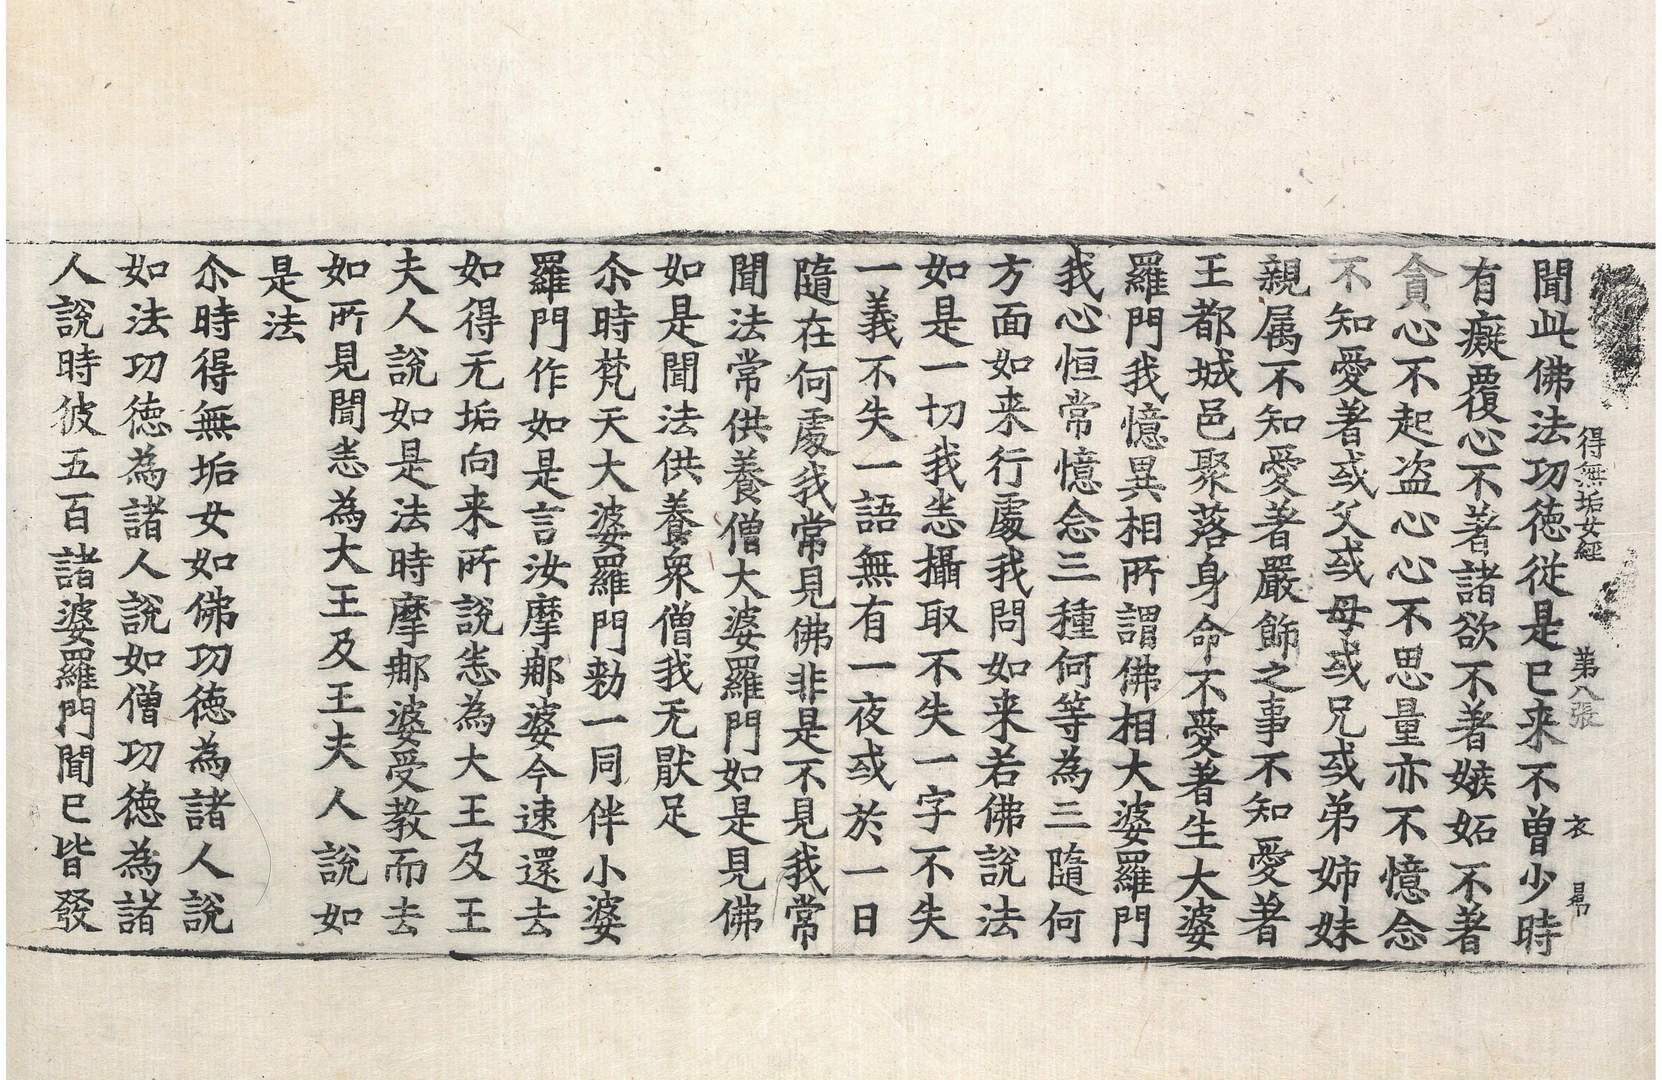 得無垢女経　第八張　衣　昻
聞此佛法功徳従是已来不曽少時
有癡覆心不著諸欲不著嫉妬不著
貪心不起盗心心不思量亦不憶念
不知愛著或父或母或兄或弟姉妹
親属不知愛著嚴飾之事不知愛著
王都城邑聚落身命不愛著生大婆
羅門我憶異相所謂佛相大婆羅門
我心恒常憶念三種何等為三隨何
方面如来行處我問如来若佛說法
如是一切我悉攝取不失一字不失
一義不失一語無有一夜或於一日
隨在何處我常見佛非是不見我常
聞法常供養僧大婆羅門如是見佛
如是聞法供養衆僧我无猒足
尒時梵天大婆羅門勑一同伴小婆
羅門作如是言汝摩郍婆今速還去
如得无垢向来所說悉為大王及王
夫人說如是法時摩郍婆受教而去
如所見聞悉為大王及王夫人說如
是法
尒時得無垢女如佛功徳為諸人說
如法功徳為諸人說如僧功徳為諸
人說時彼五百諸婆羅門聞已皆發